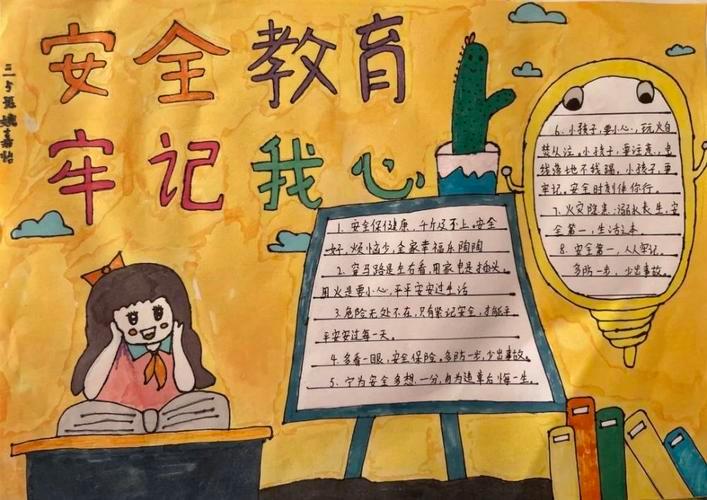 安全教育
牢记我心
1. 安全保健康, 千斤及不上。安全
好, 烦恼少, 全家幸福乐陶陶
2. 穿马路是左右看, 用家电是插头。
用火是要小心, 平平安安过生活
3. 危险无处不在, 只有紧记安全, 才能平
平安安过每一天。
4. 多看一眼, 安全保险。多防一步, 少出事故。
5. 宁为安全多想一分, 勿为违章后悔一生。
6. 小孩子, 要小心, 玩火自
焚从注, 小孩子, 要注意, 电
线落地不
小孩子, 要
牢记, 安全时刻伴你行。
7. 火灾隐患
安
全第一, 生活之本
8. 安全第一, 人人牢记
多防一步, 少出事故。